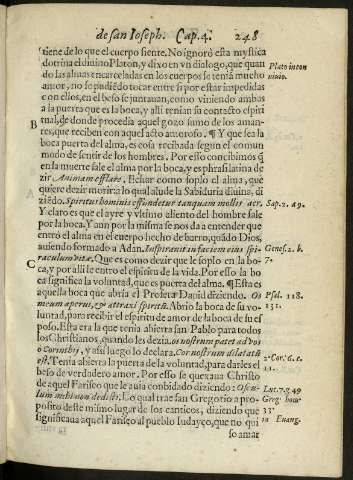 de san Ioseph. Cap. 4. 248
tiene de lo que el cuerpo siente. No ignorò esta mystica
dotrina el diuino Platon, y dixo en vn dialogo, que quan
do las almas encarceladas en los cuerpos se tenia mucho
amor, no se pudiẽdo tocar entre si por estar impedidas
con ellos, en el beso se juntauan, como viniendo ambas
a la puerta que es la boca, y alli tenian su contacto espiri
tual, de donde procedia aquel gozo sumo de los aman-
tes, que reciben con aquel acto amoroso. ¶ Y que sea la
boca puerta del alma, es cosa recibada segun el comun
modo de sentir de los hombres. Por esso concibimos q̃
en la muerte sale el alma por la boca, y es phrasi latina de
zir Animam efflare. Echar como soplo el alma, que
quiere dezir morir: a lo qual alude la Sabiduria diuina, di
ziẽdo. Spiritus hominis effundetur tanquam mollis aer.
Y claro es que el ayre y vltimo aliento del hombre sale
por la boca. Y aun por la misma se nos da a entender que
entrò el alma en el cuerpo hecho de barro, quãdo Dios,
auiendo formado a Adan. Inspirauit in faciem eius spi-
raculum vitæ. Que es como dezir que le soplo en la bo-
ca, y por alli le entro el espiritu de la vida. Por esso la bo
ca significa la voluntad, que es puerta del alma. ¶ Esta es
aquella boca que abria el Profeta Dauid diziendo. Os
meum aperui, & attraxi spiritũ. Abrio la boca de su vo-
luntad, para recibir el espiritu de amor de la boca de su es
poso. Esta era la que tenia abierta san Pablo para todos
los Christianos, quando les dezia. os nostrum patet ad vos
o Corinthij, y assi luego lo declara. Cor nostrum dilatatũ
est. Tenia abierta la puerta de la voluntad, para darles el
beso de verdadero amor. Por esso se quexaua Christo
de aquel Fariseo que le auia conbidado diziendo: Oscu-
lum mihi non dedisti. Lo qual trae san Gregorio a pro-
posito deste mismo lugar de los canticos, diziendo que
significaua aquel Fariseo al pueblo Iudayco, que no qui
so amar
Plato in con
uiuio.
B
Sap. 2. a 9.
Genes. 2. b.
7.
C
Psal. 118.
131.
2. Cor. 6. c.
11.
Luc. 7. g. 49
Greg. hom
33
in Euang.